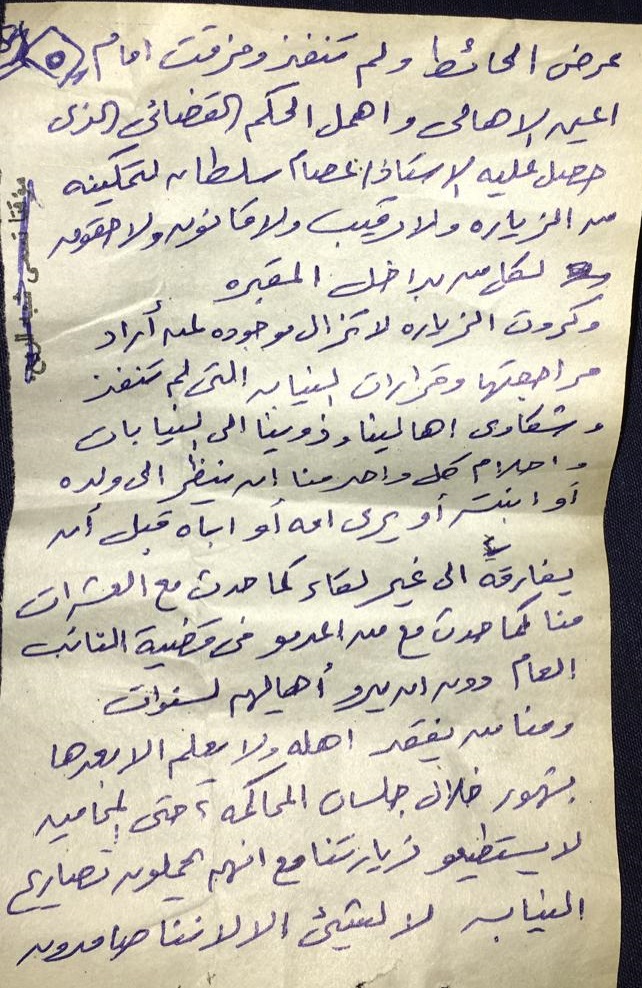 ٥
عرض الحائط ولم تنفذ ومزقت امام
اعين الاهالى واهمل الحكم القضائى الذى
حصل عليه الاستاذ/ عصام سلطان لتمكينه
من الزياره ولا رقيب ولا قانون ولا حقوق
لكل من بداخل المقبره
وكروت الزياره لا تزال موجوده لمن أراد
مراجعتها وقرارات النيابه التى لم تنفذ
وشكاوى اهالينا وذوينا الى النيابات
واحلام كل واحد منا ان ينظر الى ولده
أو ابنته أو يرى امه أو اباه قبل أن
يفارقه الى غير لقاء كما حدث مع العشرات
منا كما حدث مع من اعدمو فى قضية النائب
العام دون ان يرو أهاليهم لسنوات
ومنا من يفقد اهله ولا يعلم الا بعدها
بشهور خلال جلسات المحاكمه، حتى المحامين
لا يستطيعو زيارتنا مع انهم يحملون تصاريح
النيابه لا لشئ الا لاننا صامدون